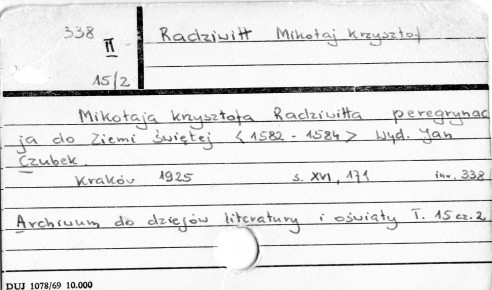 338
II
15/2
Radziwiłł Mikołaj Krzysztof
Mikołaja Krzysztofa Radziwiłła peregrynac
ja do Ziemi świętej <1582 - 1584> Wyd. Jan
Czubek.
Kraków 1925 s. XVI, 171 inw. 338
Archiwum do dziejów literatury i oświaty T. 15 cz. 2
DUJ 1078/69 10.000